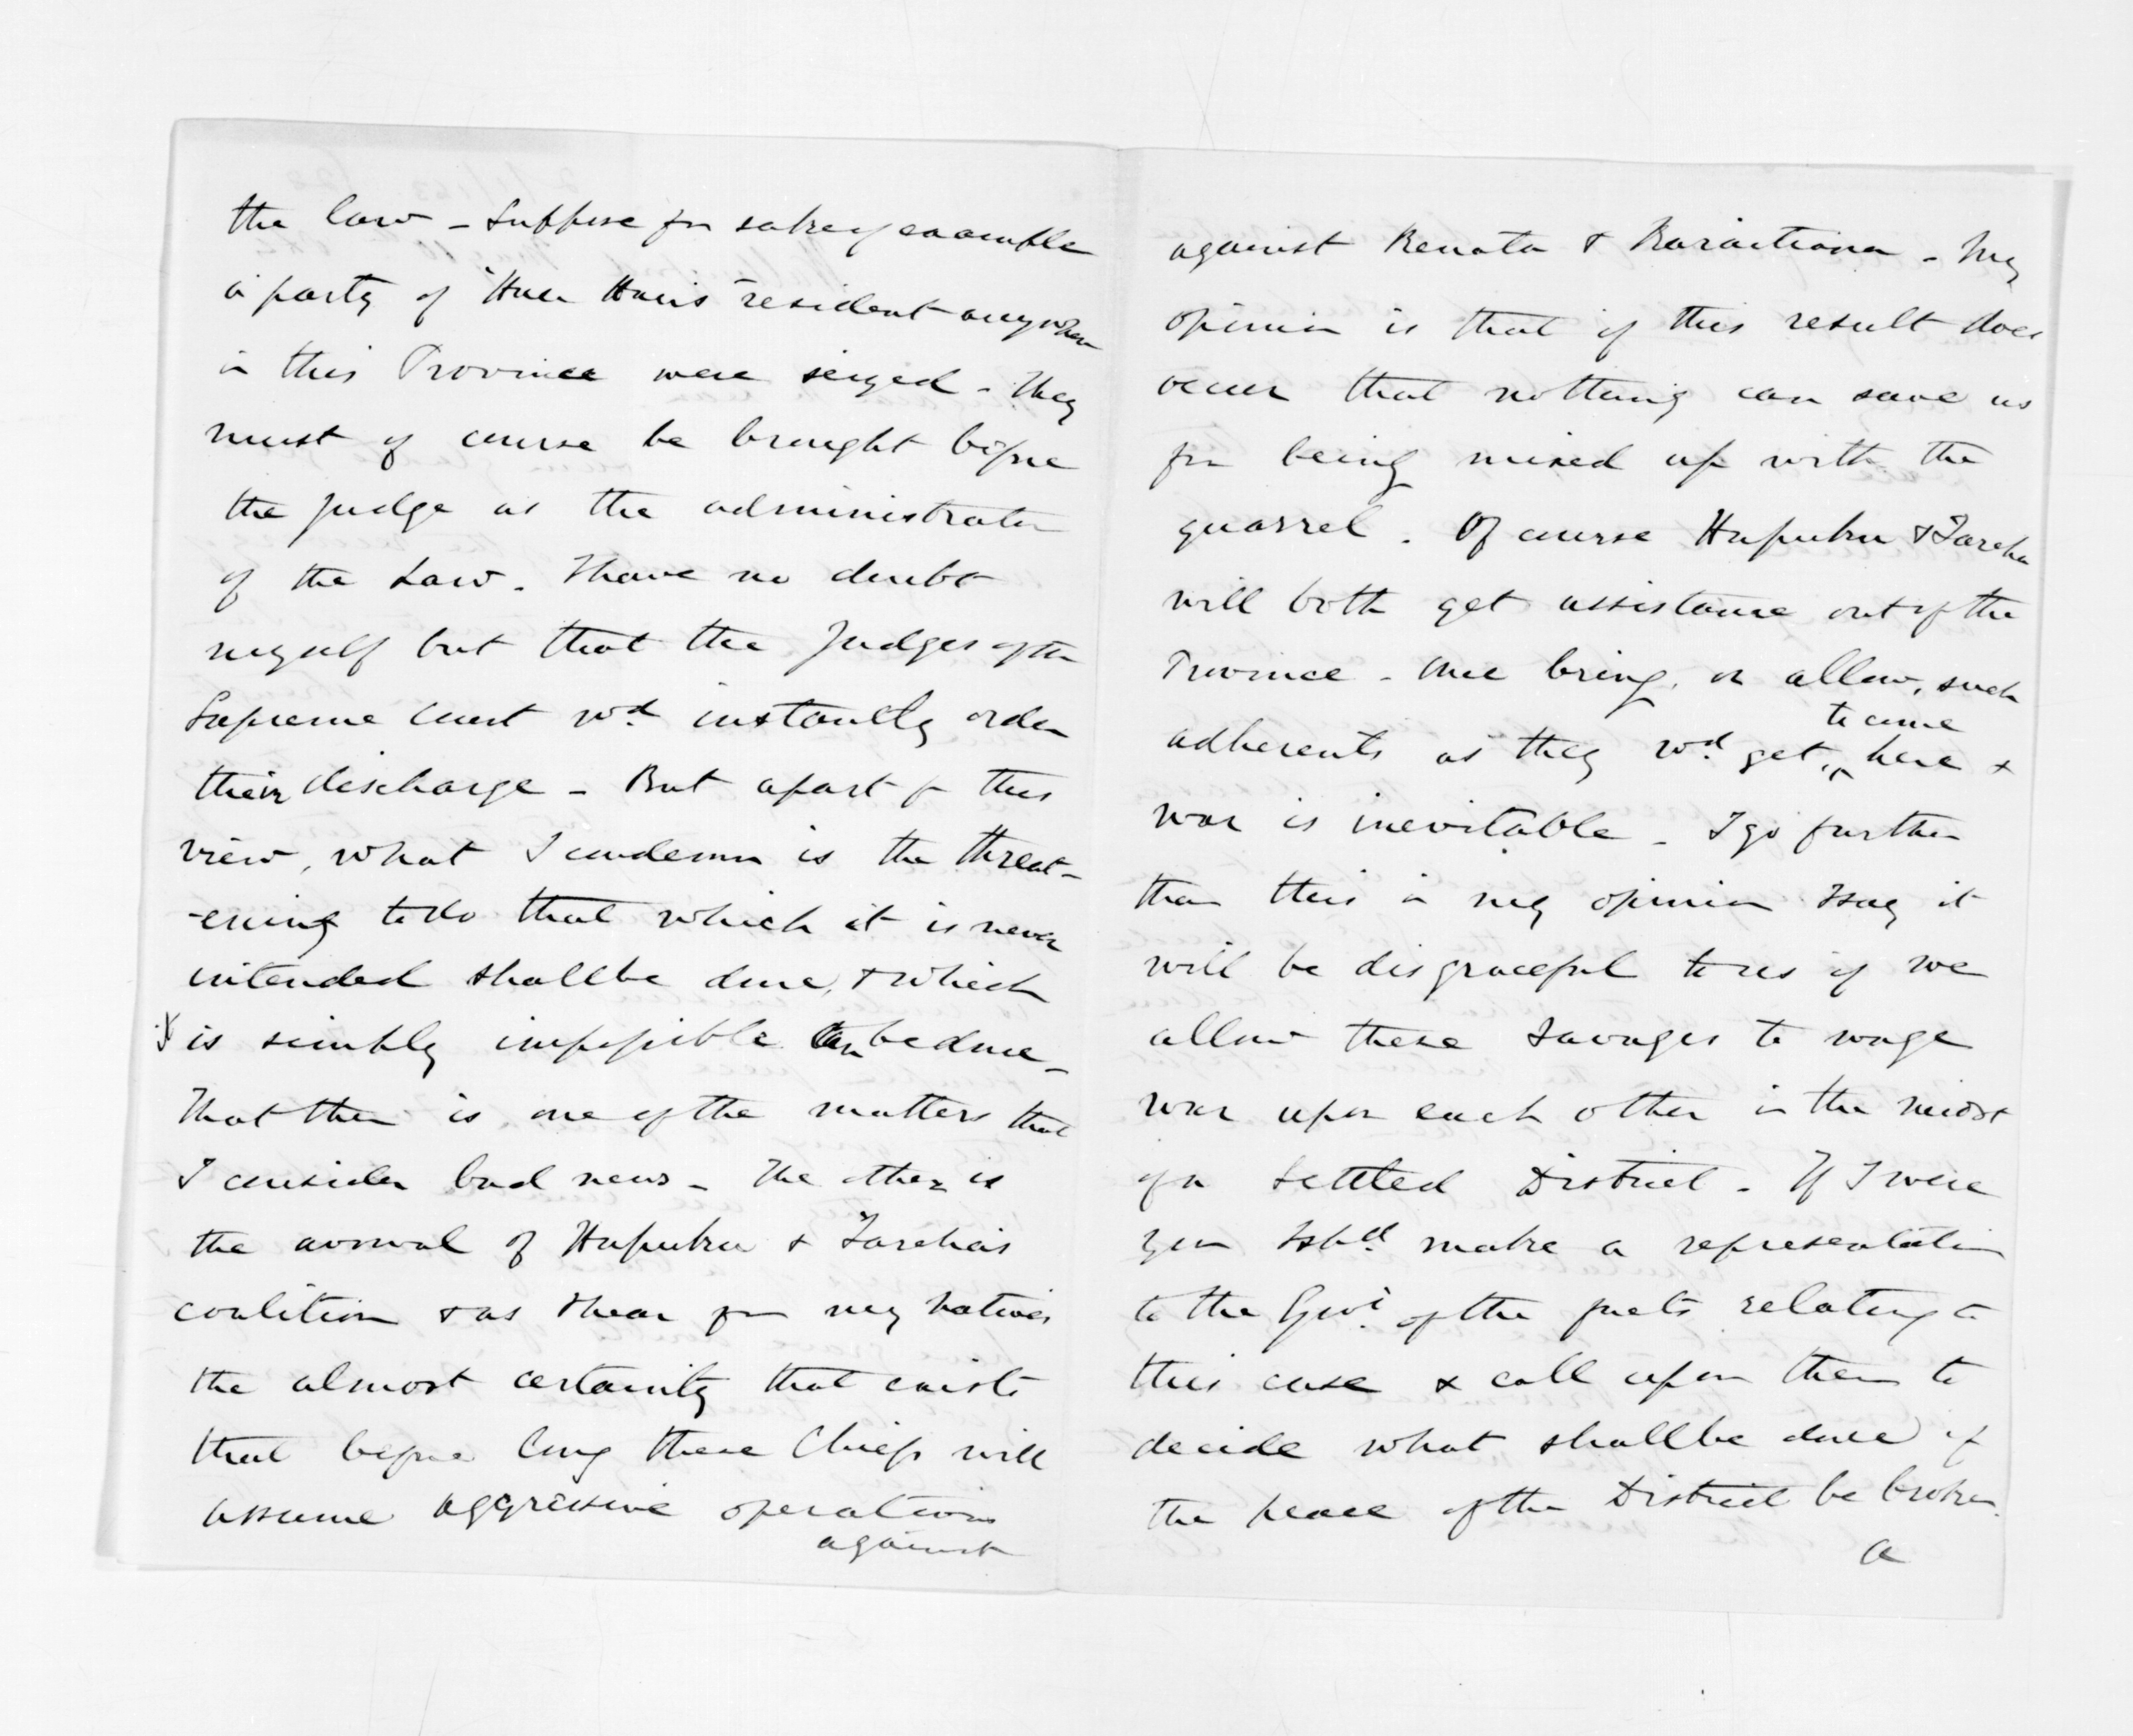 the law - Suppose for sake of example
a party of "Hau Hauis" resident anywhere
in this Province were seized - They
must of course be brought before
the Judge as the administrator
of the Law. I have no doubt
myself but that the Judges of the
Supreme Court wd. instantly order
their discharge - But apart fr this
view, what I condemn is the threat-
-ening to do that which it is never
intended shall be done, & which
is simply impossible can be done -
That then is one of the matters that
I consider bad news - The other is
the avowal of Hapuku & Tareha's
coalition & as I hear fm my natives
the almost certainty that exists
that before long these Chiefs will
assume aggressive operations
against
against Renata & Karaitiana - My
opinion is that if this result does
occur that nothing can save us
fm being mixed up with the
quarrel. Of course Hapuku & Tareha
will both get assistance out of the
Province - Once bring, or allow, such
to come
adherents as they wd. get, ^ here &
war is inevitable - I go further
than this in my opinion & say it
will be disgraceful to us if we
allow these Savages to wage
war upon each other in the midst
of a Settled District - If I were
you I shd. make a representation
to the Govt. of the facts relating to
this case & call upon them to
decide what shall be done if
the peace of the District be broken.
a